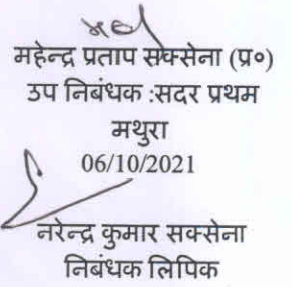 महेन्द्र प्रताप सक्सेना (प्र०)
उप निबंधक :सदर प्रथम
मथुरा
06/10/2021
नरेन्द्र कुमार सक्सेना
निबंधक लिपिक